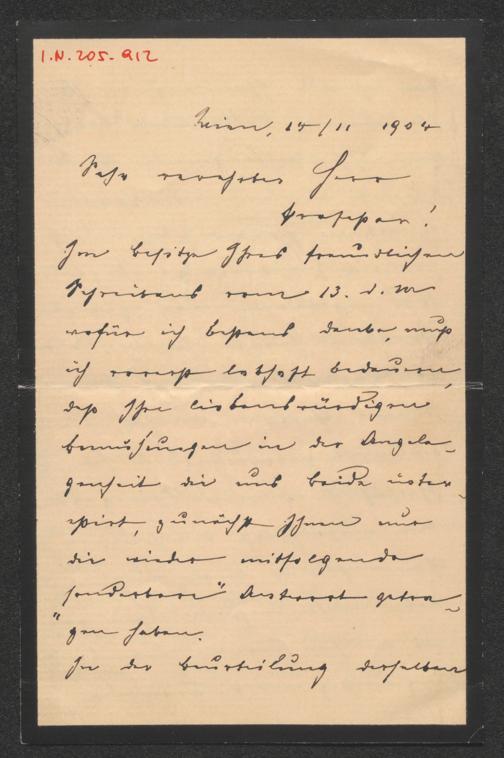 I.N. 205.912
Wien, 14/11 1904
Sehr verehrter Herr
Professor!
Im Besitze Ihres freundlichen
Schreibens vom 13. d. M
wofür ich bestens danke, muß
ich vorerst lebhaft bedauern,
daß Ihre liebenswürdigen
Bemühungen in der Angele-
genheit die uns beide inter-
essirt, zunächst Ihnen nur
die wieder mitfolgende
sonderbare" Antwort getra-
"gen haben.
In der Beurteilung derselben